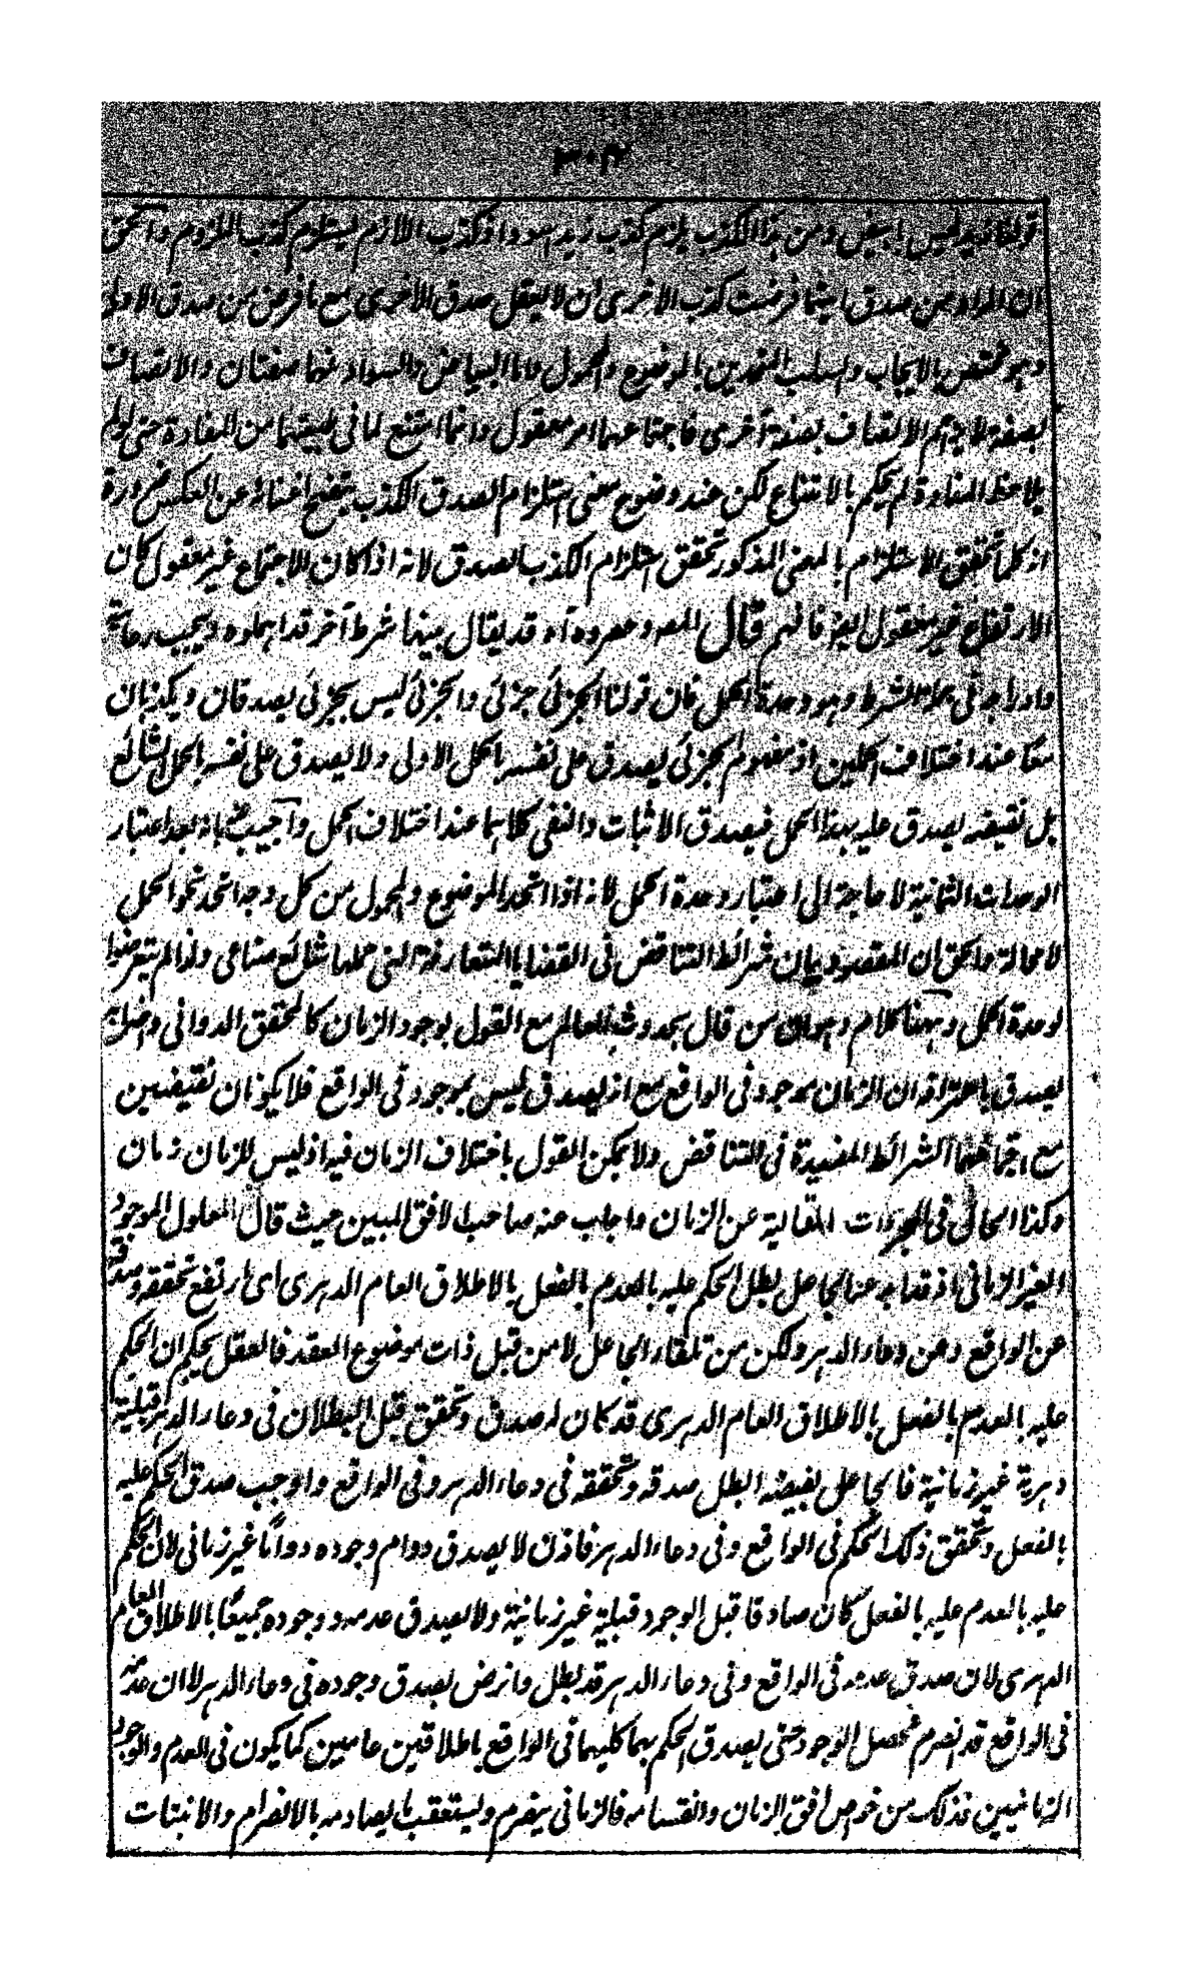 ٣٠٤
قولنا زيد ليس بابيض ومن هذا الكذب يلزم كذب زيد اسود اذ كذب اللازم يستلزم كذب الملزوم والحق
ان المراد من صدق ايتها فرضت كذب الاخرى ان لا يعقل صدق الاخرى مع ما فرض من صدق الاولى
وهو مختص بالايجاب والسلب المتحدين بالموضوع والمحمول واما البياض والسواد فهما صفتان والاتصاف
بصفة لا يهم الاتصاف بصفة أخرى فاجتماعهما امر معقول وانما امتنع لما في طبيعتهما من المضادة حتى لو لم
يلاحظ المضادة لم يحكم بالامتناع لكن عند وضوح معنى استلزام الصدق الكذب يتضح اغناؤه عن العكس ضرورة
انه كلما تحقق الاستلزام بالمعنى المذكور تحقق استلزام الكذب الصدق لانه اذا كان الاجتماع غير معقول كان
الارتفاع غير معقول ايضا فافهم قال المصـ وحصروه آه قد يقال بينها شرط آخر قد اهملوه ويجيب رعايته
وادراجه في عداد الشرط وهو وحدة الحمل فان قولنا الجزئي جزئي والجزئي ليس بجزئي يصدقان ويكذبان
معًا عند اختلاف الحملين اذ مفهوم الجزئي يصدق على نفسه بالحمل الاولى ولا يصدق على نفسه بالحمل الشائع
بل نقيضه يصدق عليه بهذا الحمل فيصدق الاثبات والنفي كلاهما عند اختلاف الحمل وأجيب بانه بعد اعتبار
الوحدات الثمانية لا حاجة الى اعتبار وحدة الحمل لانه اذا اتحد الموضوع والمحمول من كل وجه اتحد نحو الحمل
لا محالة والحق ان المقصود بيان شرائط التناقض في القضايا المتعارفة التي حملها شائع صناعى ولذا لم يتعرضوا
لوحدة الحمل وههنا كلام وهو ان من قال بحدوث العالم مع القول بوجود الزمان كالمحقق الدوانى واضرابه
يصدق باعترافه ان الزمان موجود في الواقع مع انه يصدق ليس بموجود في الواقع فلا يكونان نقيضين
مع اجتماعهما الشرائط المفيدة في التناقض ولا يمكن القول باختلاف الزمان فيه اذ ليس للزمان زمان
وكذا الحال في المجردات المتعالية عن الزمان واجاب عنه صاحب الافق المبين حيث قال المعلول الموجود
الغير الزمانى اذ قضا به عنا الجاعل بطل الحكم عليه بالعدم بالفعل بالاطلاق العام الدهرى اى ارتفع تحققه وصدقه
عن الواقع وعن وعاء الدهر ولكن من تلقاء الجاعل لا من قبل ذات موضوع العقد فالعقل يحكم ان الحكم
عليه بالعدم بالفعل بالاطلاق العام الدهرى قد كان له صدق وتحقق قبل البطلان في وعاء الدهر قبلية
دهرية غير زمانية فالجاعل بفيضه ابطل صدقه وتحققه في وعاء الدهر وفي الواقع واوجب صدق الحكم عليه
بالفعل وتحقق ذلك الحكم في الواقع وفي وعاء الدهر فاذن لا يصدق دوام وجوده دوامًا غير زمانى لان الحكم
عليه بالعدم عليه بالفعل كان صادقا قبل الوجود قبلية غير زمانية ولا يصدق عدمه ووجوده جميعًا بالاطلاق العام
الدهرى لان صدق عدمه في الواقع وفي وعاء الدهر قد بطل وما نرض بصدق وجوده في وعاء الدهر لا ان عدمه
في الواقع قد انصرم فحصل الوجود حتى يصدق الحكم بهما كليهما في الواقع باطلاقين عامين كما يكون في العدم والوجود
الزمانيين فذلك من خواص افق الزمان وانقسامه فالزمانى ينصرم ويستعقب ما يصادمه بالانصرام والانبتات